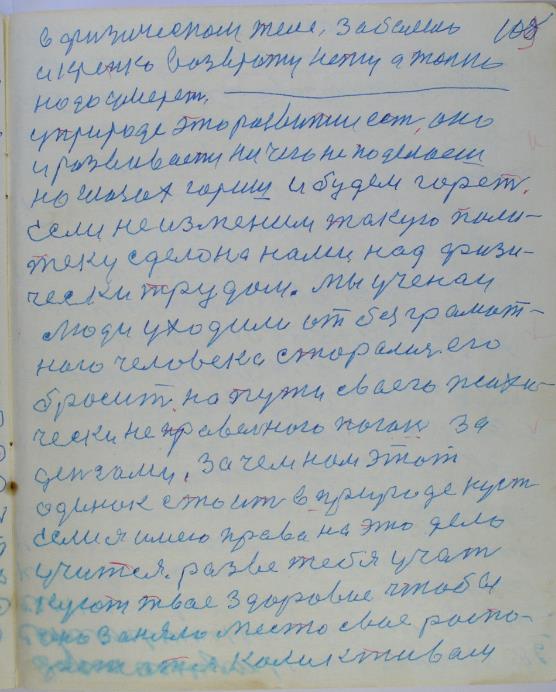 в физическом теле, заболел 103
и крепко возврату нету а толко
надо умерет.
у природе это развитии ест, оно
и развивает ничего не поделаеш
на глазах гориш и будем горет.
Если не изменим такую поли-
теку сделона нами над физи-
чески трудом. Мы ученаи
люди уходили от безграмот-
ного человека старалис его
бросит на пути своего психи-
чески не правелного погон за
денгами, зачем нам этот
одинок стоит в природе куст
если я имею права на это дело
учится. разве тебя учат
куст твое здоровие чтобы
оно заняло место свое
колективам